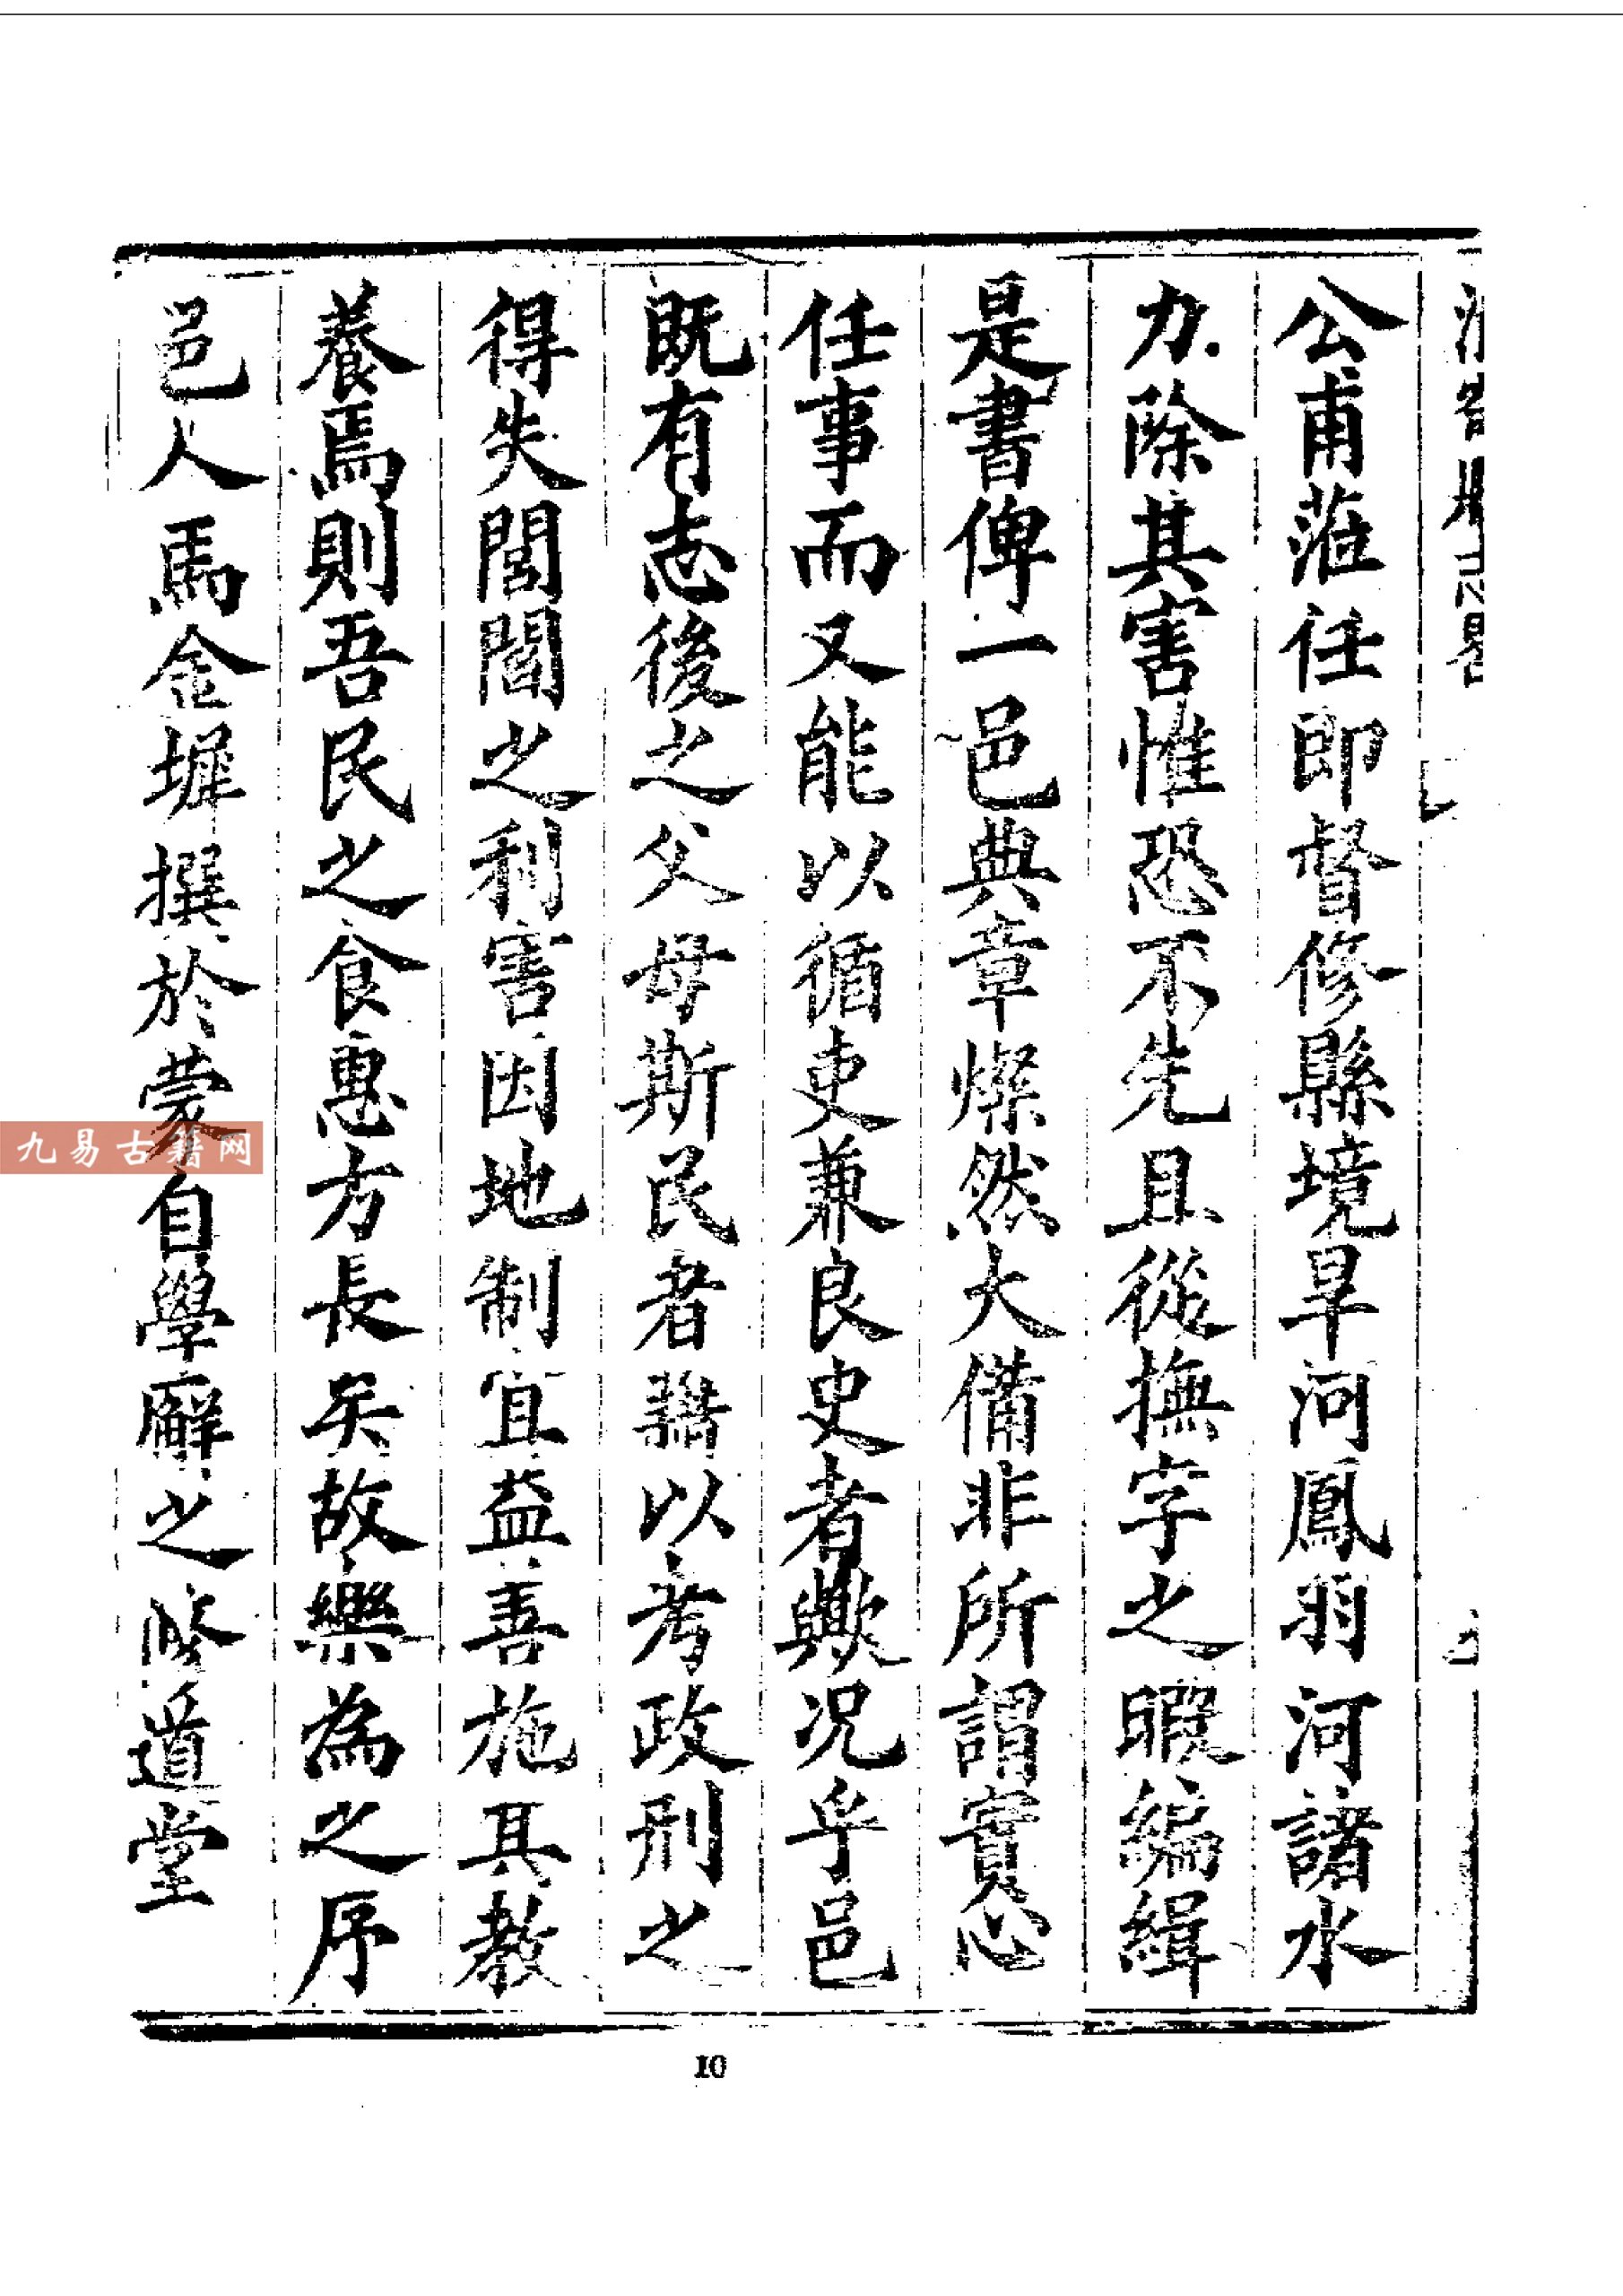 公甫蒞任即督修縣境旱河鳳羽河諸水
力除其害惟恐不先且從撫字之暇編緝
是書俾一邑典章燦然大備非所謂實心
任事而又能以循吏兼良史者歟况乎邑
既有志後之父母斯民者藉以考政刑之
得失閭閻之利害因地制宜益善施其教
養焉則吾民之食惠方長矣故樂為之序
邑人馬金墀撰於蒙自學廨之修道堂
九易古籍网
10